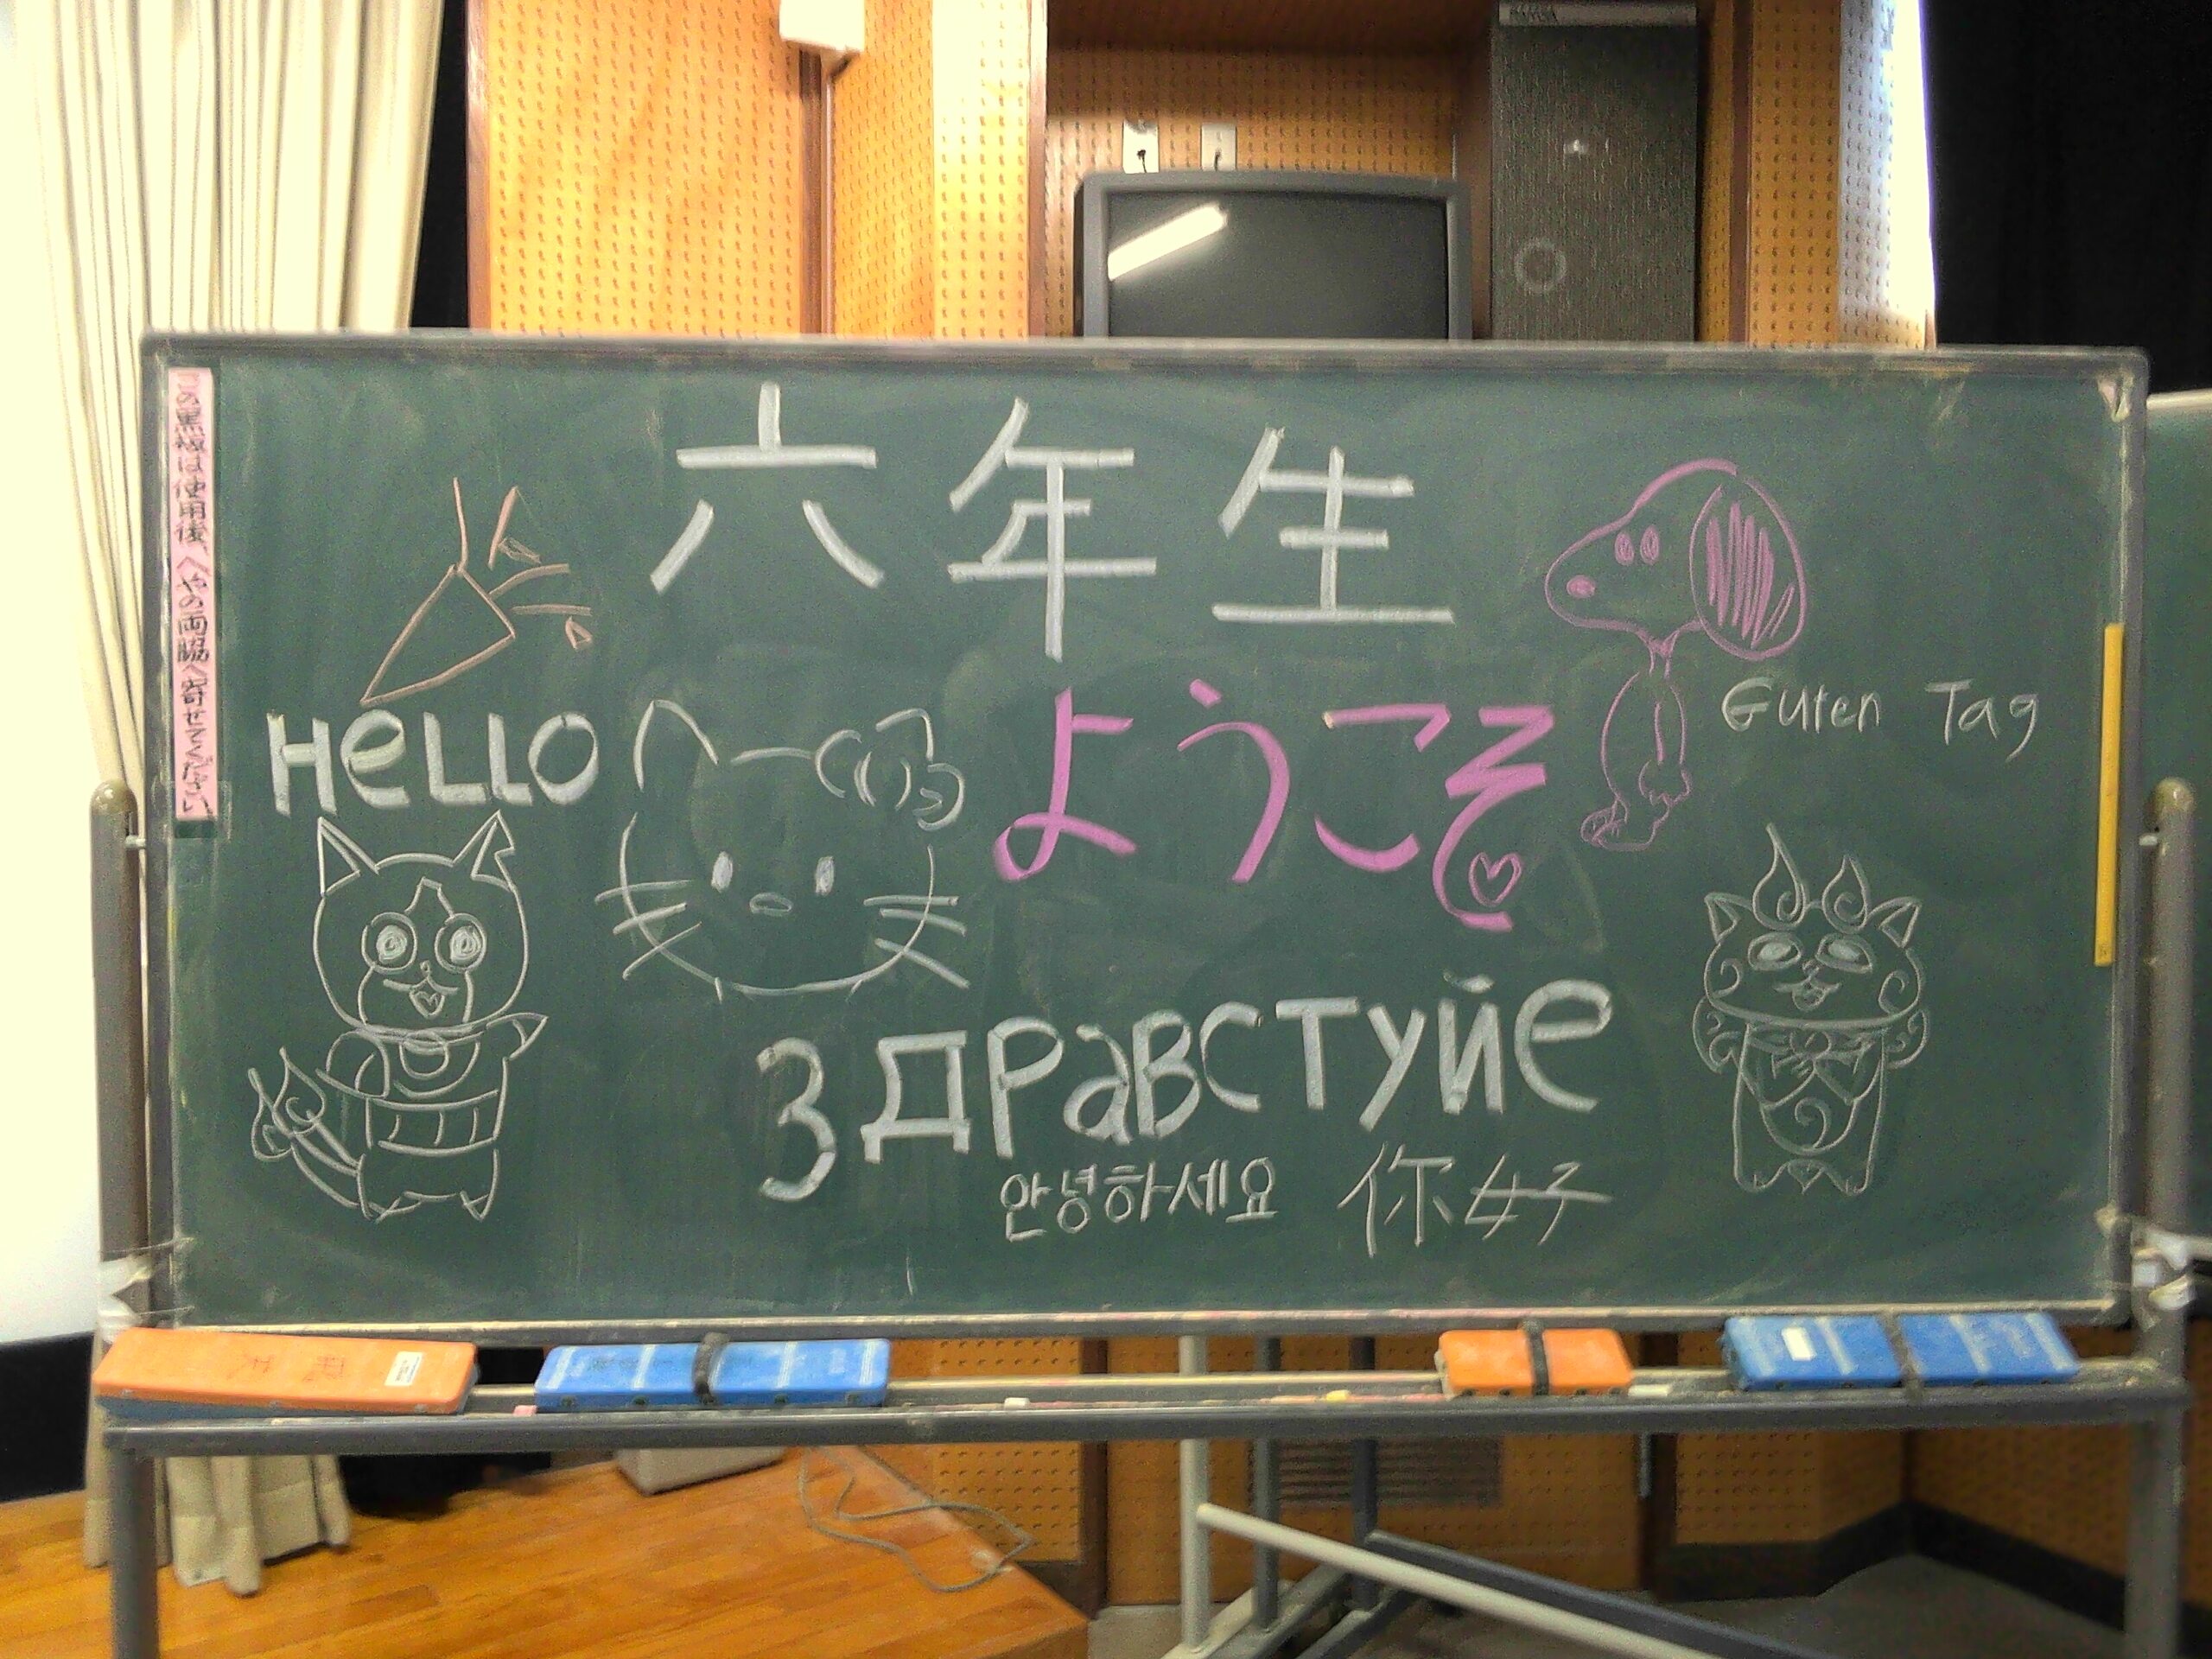 六年生
ようこそ
HeLLO
Guten Tag
Здравстуйе
안녕하세요 你好
この黒板は使用後、へやの両脇へ寄せてください